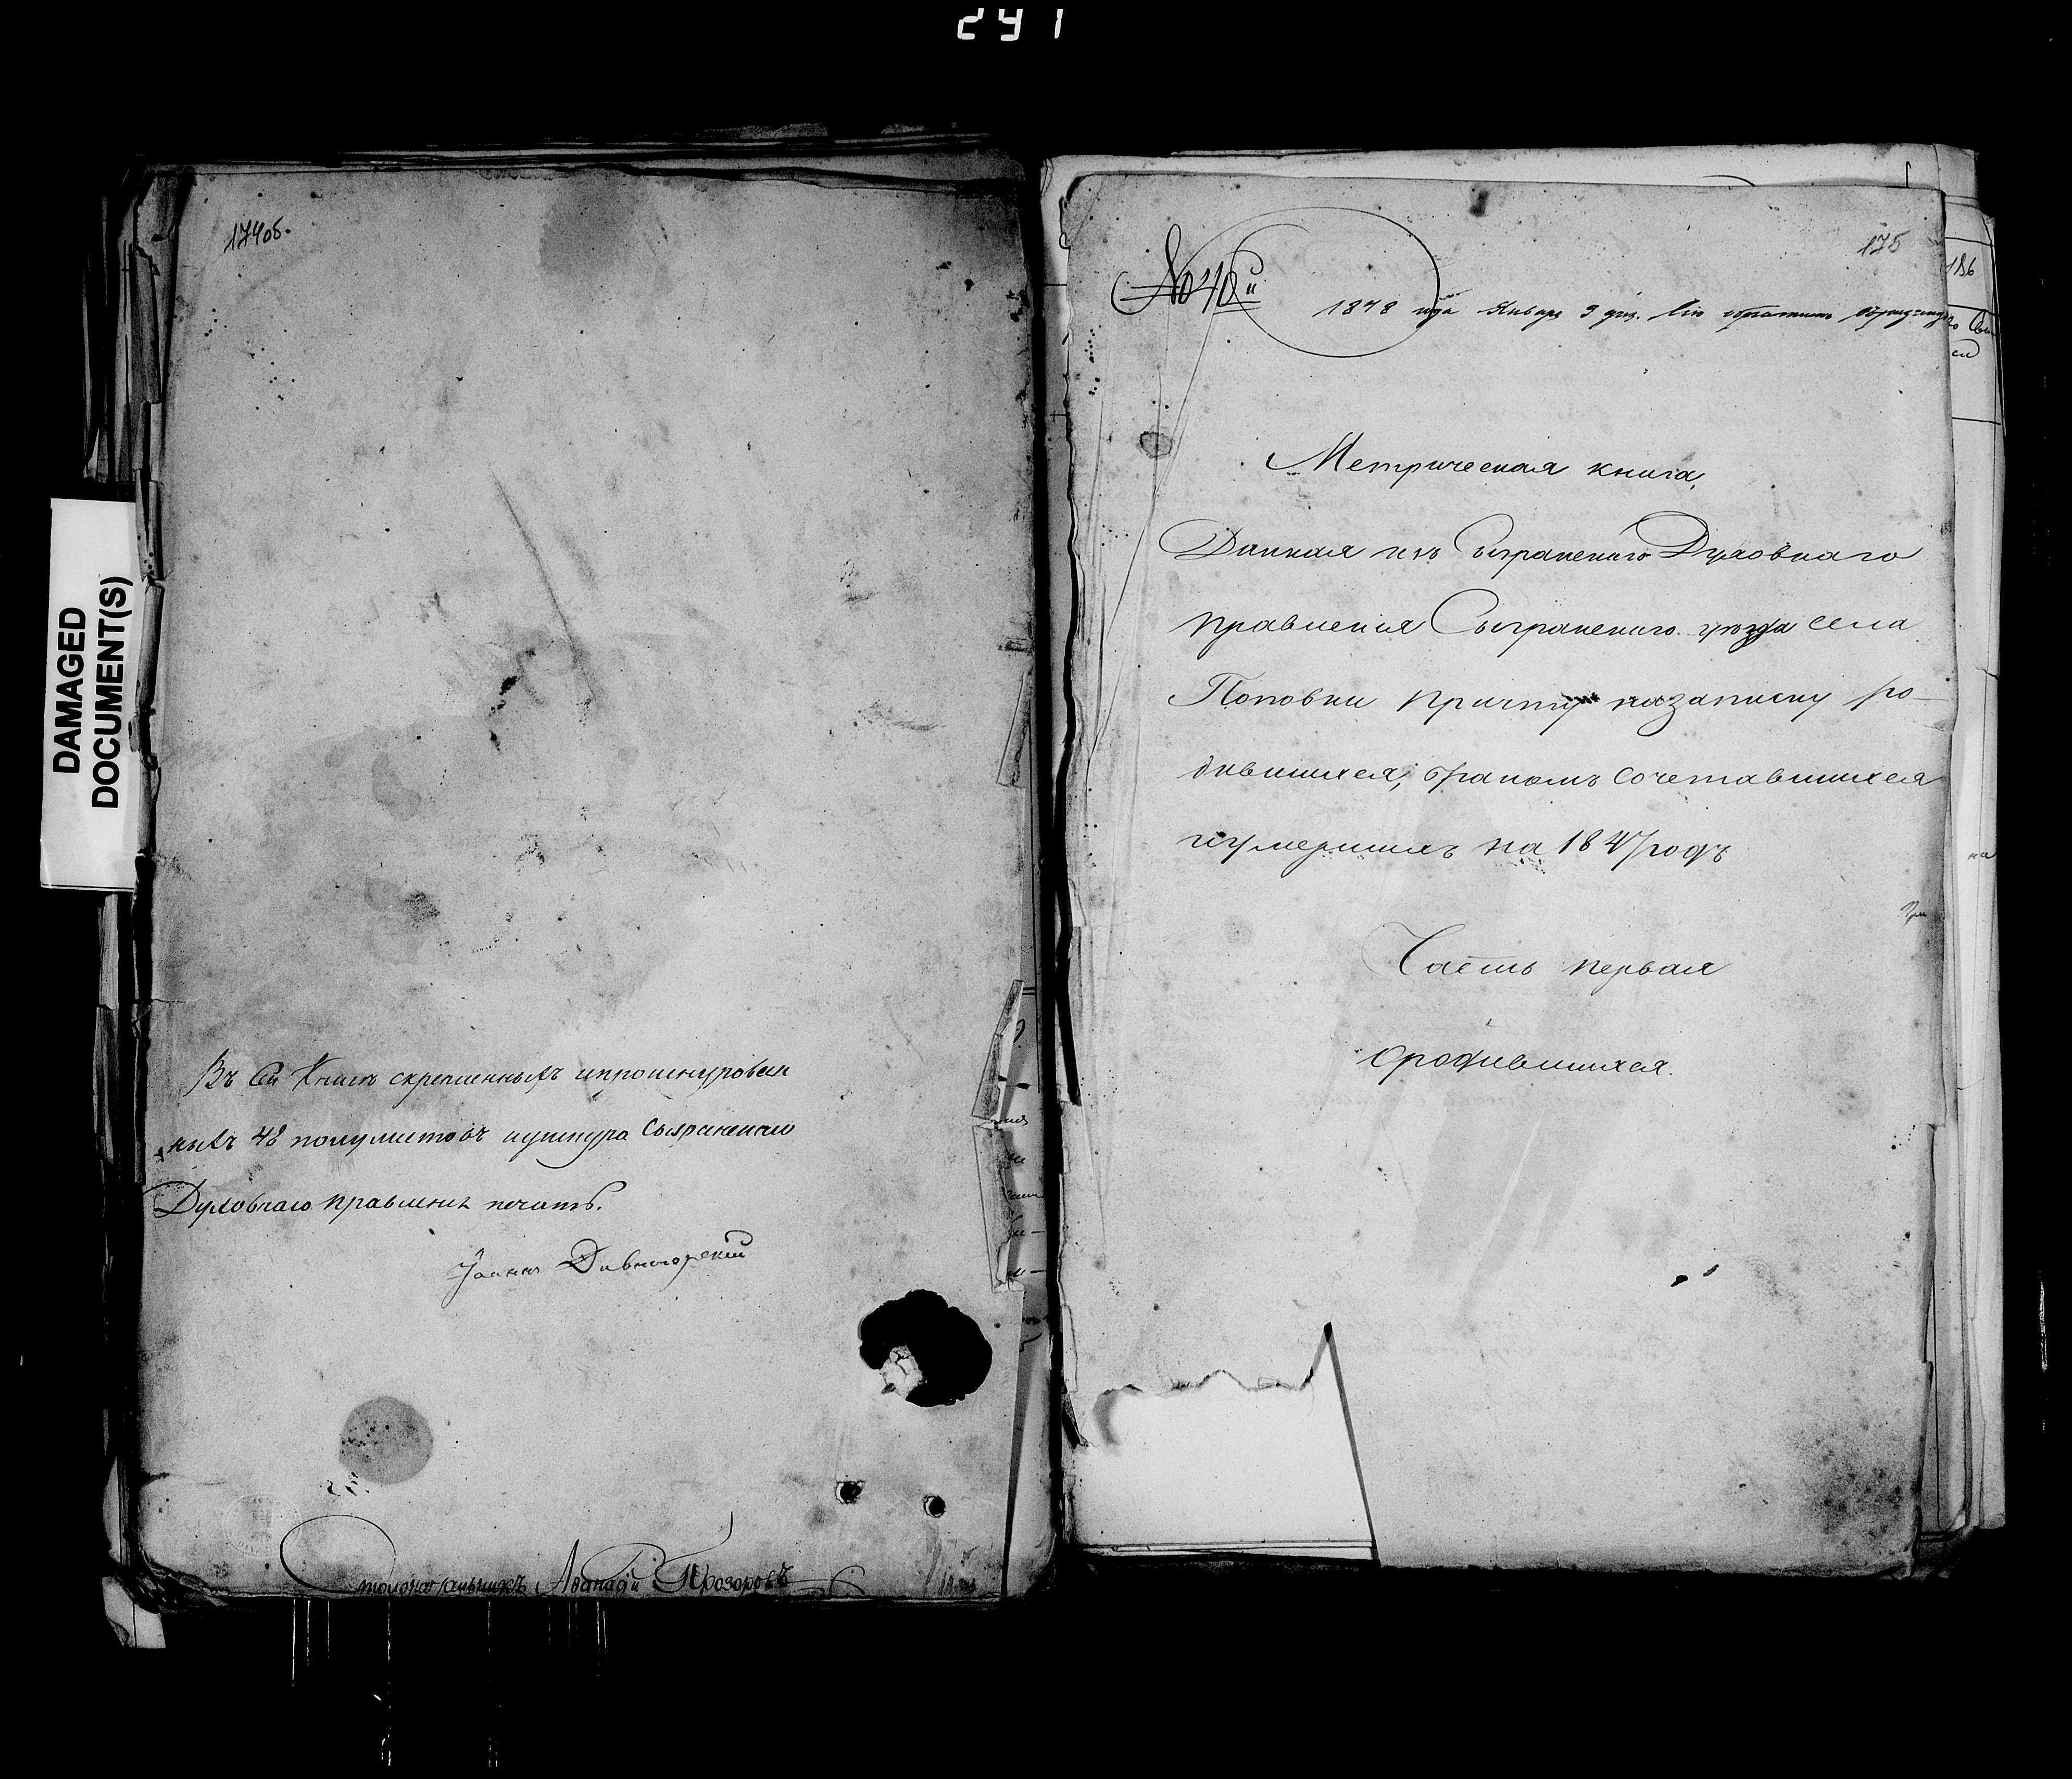 241
DAMAGED
DOCUMENT(S)
174об.
Въ сей Книгѣ скрепленныхъ ипрошнурован
ныхъ 48 полулистовъ ушнура Сызранскаго
Духовнаго правления печать.
Іоаннъ Дивногорский
Столоначальникъ Афанасій Прозоровъ
175
№ 40й
1848 года Января 3 дня.
186
Метрическая книга,
Данная изъ Сызранскаго Духовнаго
правления Сызранскаго уезда села
Поповки причту назаписку ро-
дившихся, бракомъ сочетавшихся
иумершихъ на 1847 годъ
Часть первая
ородившихся.